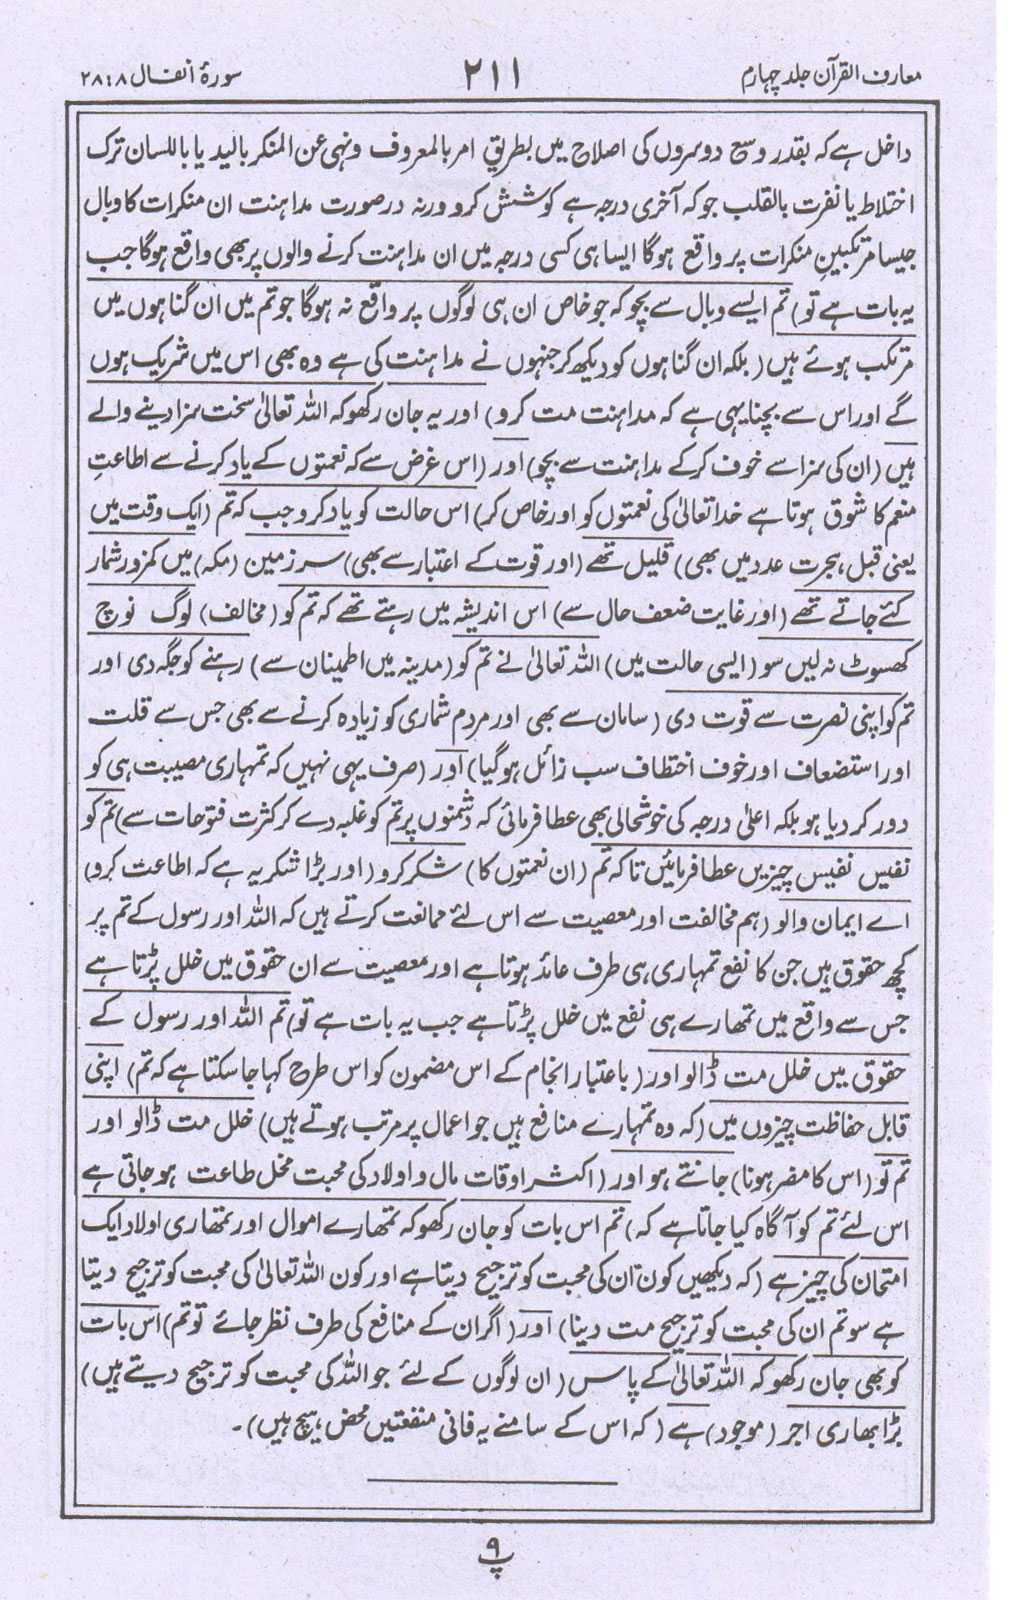 معارف القرآن جلد چہارم
۲۱۱
سورۂ انفال ۸ : ۲۸
داخل ہے کہ بقدر وسع دوسروں کی اصلاح میں بطریق امر بالمعروف ونہی عن المنکر بالید یا باللسان ترک
اختلاط یا نفرت بالقلب جو کہ آخری درجہ ہے کوشش کرو ورنہ درصورت مداہنت ان منکرات کا وبال
جیسا مرتکبینِ منکرات پر واقع ہوگا ایسا ہی کسی درجہ میں ان مداہنت کرنے والوں پر بھی واقع ہوگا جب
یہ بات ہے تو) تم ایسے وبال سے بچو کہ جو خاص ان ہی لوگوں پر واقع نہ ہوگا جو تم میں ان گناہوں میں
مرتکب ہوئے ہیں (بلکہ ان گناہوں کو دیکھ کر جنہوں نے مداہنت کی ہے وہ بھی اس میں شریک ہوں
گے اور اس سے بچنا یہی ہے کہ مداہنت مت کرو) اور یہ جان رکھو کہ اللہ تعالیٰ سخت سزا دینے والے
ہیں (ان کی سزا سے خوف کرکے مداہنت سے بچو) اور (اس غرض سے کہ نعمتوں کے یاد کرنے سے اطاعتِ
منعم کا شوق ہوتا ہے خدا تعالیٰ کی نعمتوں کو اور خاص کر) اس حالت کو یاد کرو جب کہ تم (ایک وقت میں
یعنی قبل ہجرت عدد میں بھی) قلیل تھے (اور قوت کے اعتبار سے بھی) سرزمین (مکہ) میں کمزور شمار
کئے جاتے تھے (اور غایت ضعف حال سے) اس اندیشہ میں رہتے تھے کہ تم کو (مخالف) لوگ نوچ
کھسوٹ نہ لیں سو (ایسی حالت میں) اللہ تعالیٰ نے تم کو (مدینہ میں اطمینان سے) رہنے کو جگہ دی اور
تم کو اپنی نصرت سے قوت دی (سامان سے بھی اور مردم شماری کو زیادہ کرنے سے بھی جس سے قلت
اور استضعاف اور خوف اختطاف سب زائل ہوگیا) اور (صرف یہی نہیں کہ تمہاری مصیبت ہی کو
دور کر دیا ہو بلکہ اعلیٰ درجہ کی خوشحالی بھی عطا فرمائی کہ دشمنوں پر تم کو غلبہ دے کر کثرت فتوحات سے) تم کو
نفیس نفیس چیزیں عطا فرمائیں تاکہ تم (ان نعمتوں کا) شکر کرو (اور بڑا شکر یہ ہے کہ اطاعت کرو)
اے ایمان والو (ہم مخالفت اور معصیت سے اس لئے ممانعت کرتے ہیں کہ اللہ اور رسول کے تم پر
کچھ حقوق ہیں جن کا نفع تمہاری ہی طرف عائد ہوتا ہے اور معصیت سے ان حقوق میں خلل پڑتا ہے
جس سے واقع میں تمھارے ہی نفع میں خلل پڑتا ہے جب یہ بات ہے تو) تم اللہ اور رسول کے
حقوق میں خلل مت ڈالو اور (باعتبار انجام کے اس مضمون کو اس طرح کہا جاسکتا ہے کہ تم) اپنی
قابل حفاظت چیزوں میں (کہ وہ تمہارے منافع ہیں جو اعمال پر مرتب ہوتے ہیں) خلل مت ڈالو اور
تم تو (اس کا مضر ہونا) جانتے ہو اور (اکثر اوقات مال و اولاد کی محبت مخل طاعت ہو جاتی ہے
اس لئے تم کو آگاہ کیا جاتا ہے کہ) تم اس بات کو جان رکھو کہ تمھارے اموال اور تمھاری اولاد ایک
امتحان کی چیز ہے (کہ دیکھیں کون ان کی محبت کو ترجیح دیتا ہے اور کون اللہ تعالیٰ کی محبت کو ترجیح دیتا
ہے سو تم ان کی محبت کو ترجیح مت دینا) اور (اگر ان کے منافع کی طرف نظر جائے تو تم) اس بات
کو بھی جان رکھو کہ اللہ تعالیٰ کے پاس (ان لوگوں کے لئے جو اللہ کی محبت کو ترجیح دیتے ہیں)
بڑا بھاری اجر (موجود) ہے (کہ اس کے سامنے یہ فانی منفعتیں محض ہیچ ہیں)۔
پ۹